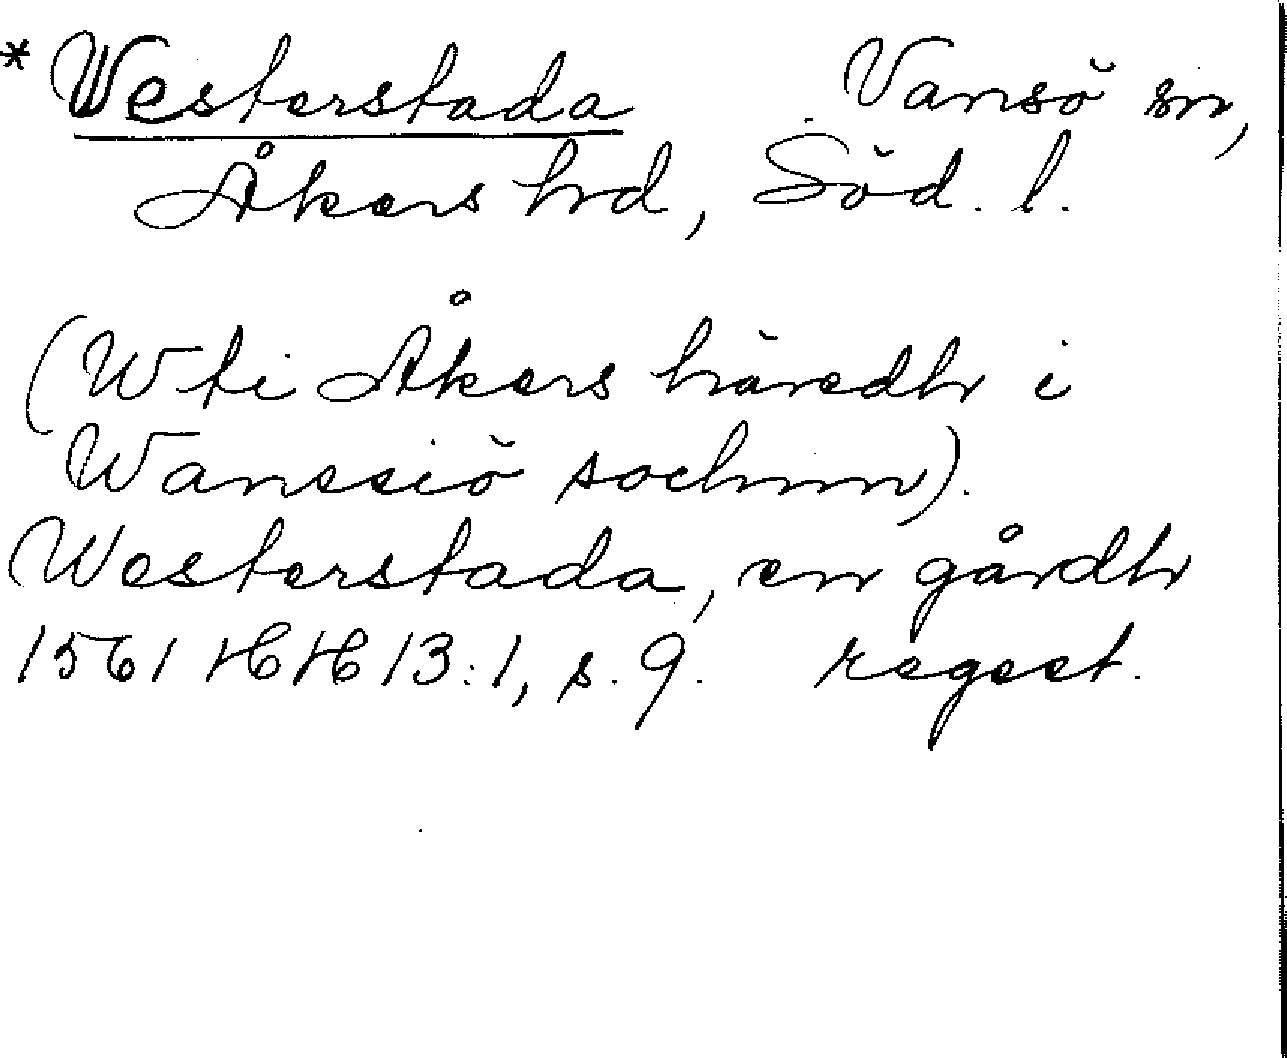 * Westerstada Vansö sn,
Åkers hd, Söd. l.
(W ti Åkers häredh i
Wanssiö sochnn).
Westerstada, en gårdh
1561 HH 13:1, s. 9. regest.